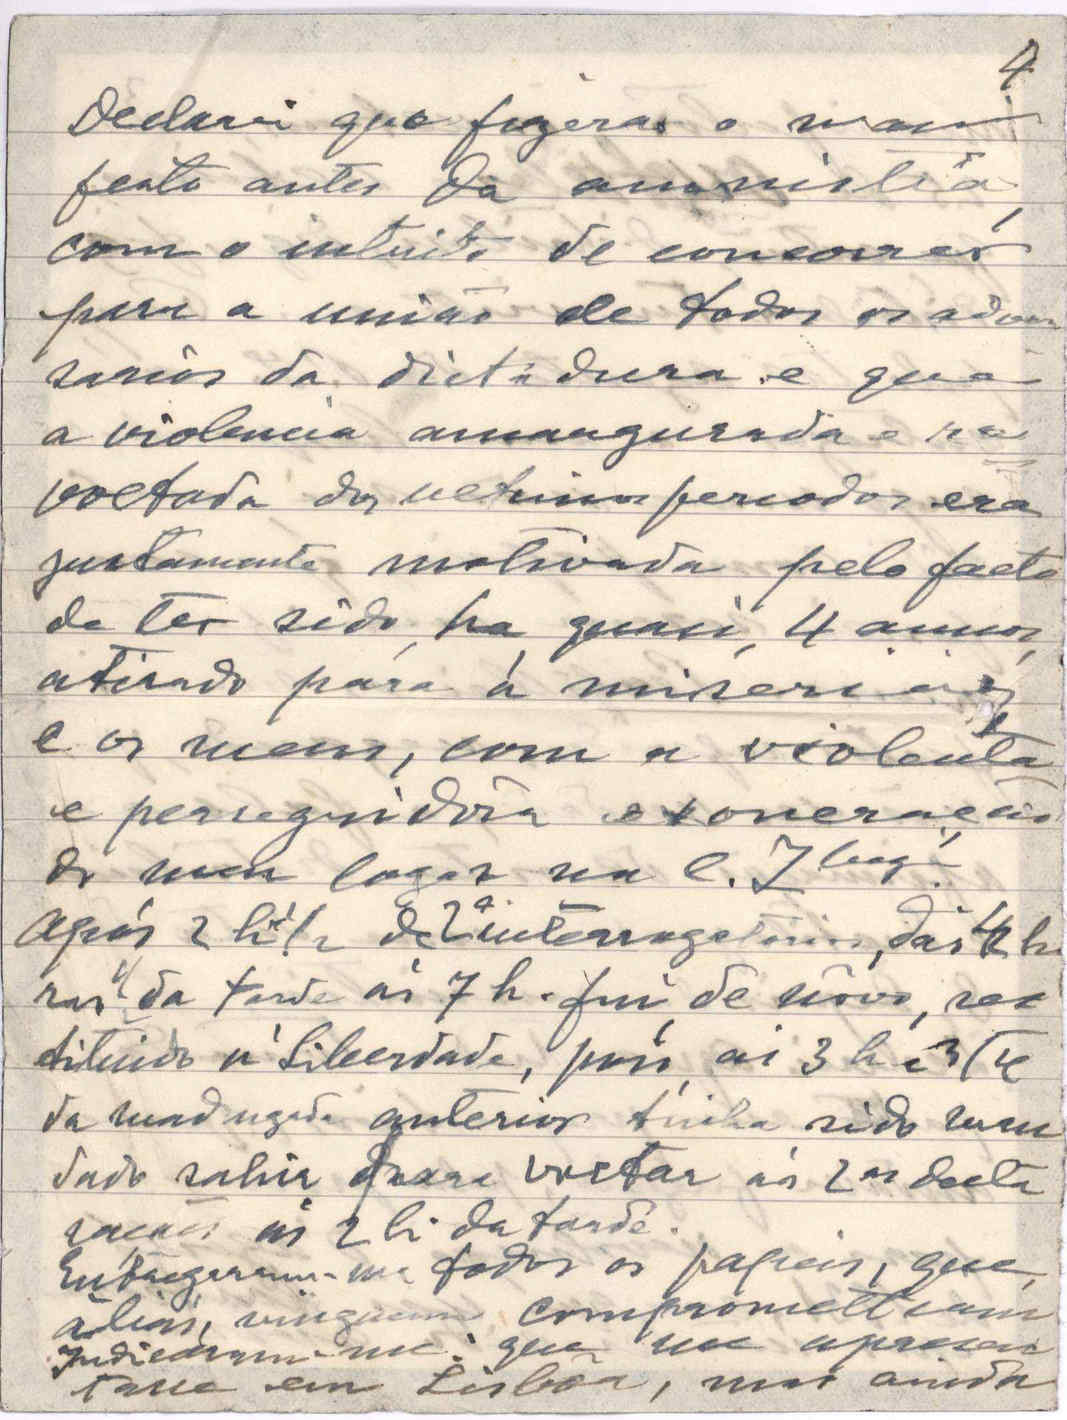 4
Declarei que fizera o mani
festo antes da amnistia,
com o intuito de concorrer
para a união de todos os adver
sarios da dictadura e que
a violencia amargurada e re
voltada dos ultimos periodos era
justamente motivada pelo facto
de ter sido, ha quasi, 4 annos,
atirado para a miseria,
e os meus, com a violenta
e perseguidora exoneração
do meu logar na C.
Após 2 h 1/2 de 2º interrogatorio, das 4 ho
ras 1/2 da tarde ás 7 h. fui, de novo, res
tituido á liberdade, pois, ás 3 h e 3/4
da madrugada anterior tinha sido man
dado sahir para voltar ás 2as decla
rações ás 2 h da tarde.
Entregaram-me todos os papeis, que,
aliás, ninguem compromettiam
Indicaram-me que me apresen
tasse em Lisbôa, mas ainda